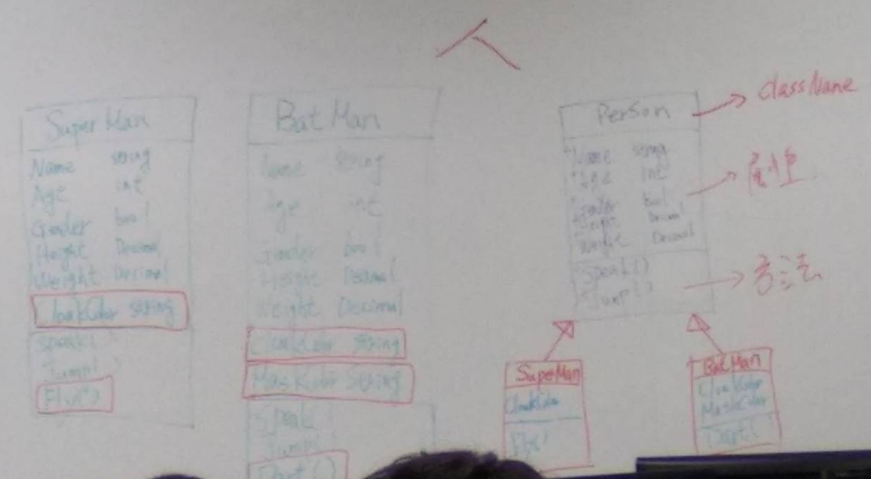 人
SuperMan
Name string
Age int
Gender bool
Height Decimal
Weight Decimal
CloakColor string
Speak()
Jump()
Fly()
BatMan
Name string
Age int
Gender bool
Height Decimal
Weight Decimal
CloakColor string
MaskColor String
Speak()
Jump()
Person
className
Name string
Age int
Gender bool
Height Decimal
Weight Decimal
属性
Speak()
Jump()
方法
SupeMan
CloakColor
Fly()
BatMan
CloakColor
MaskColor